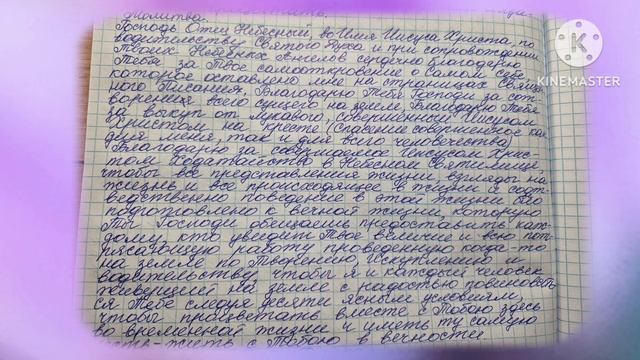 Молитва.
Господь Отец Небесный, во Имя Иисуса Христа, по
водительству Святого Духа и при сопровождении
Твоих Небесных Ангелов сердечно благодарю
Тебя за Твое самооткровение о Самом Себе,
которое оставлено мне на страницах Священ-
ного Писания. Благодарю Тебя Господи за сот-
ворение всего сущего на земле. Благодарю Тебя
за выкуп от лукавого, совершенный Иисусом
Христом на кресте (спасение совершенное как
для меня, так и для всего человечества)
Благодарю за совершаемое Иисусом Хрис-
том Ходатайство в Небесном Святилище
чтобы все представления жизни, взгляды на
жизнь и все происходящее в жизни и соот-
ведственно поведение в этой жизни было
подготовлено к вечной жизни, которую
Ты Господи обещаешь предоставить каж-
дому, кто увидит Твое величие и всю пот-
рясающую работу проведенную когда-то
на земле по Творению, Искуплению и
водительству, чтобы я и каждый человек
живущий на земле с радостью повиновать
ся Тебе следуя десяти ясным условиям,
чтобы процветать вместе с Тобою здесь
во временной жизни и иметь ту самую
жить с Тобою в вечности.
KINEMASTER